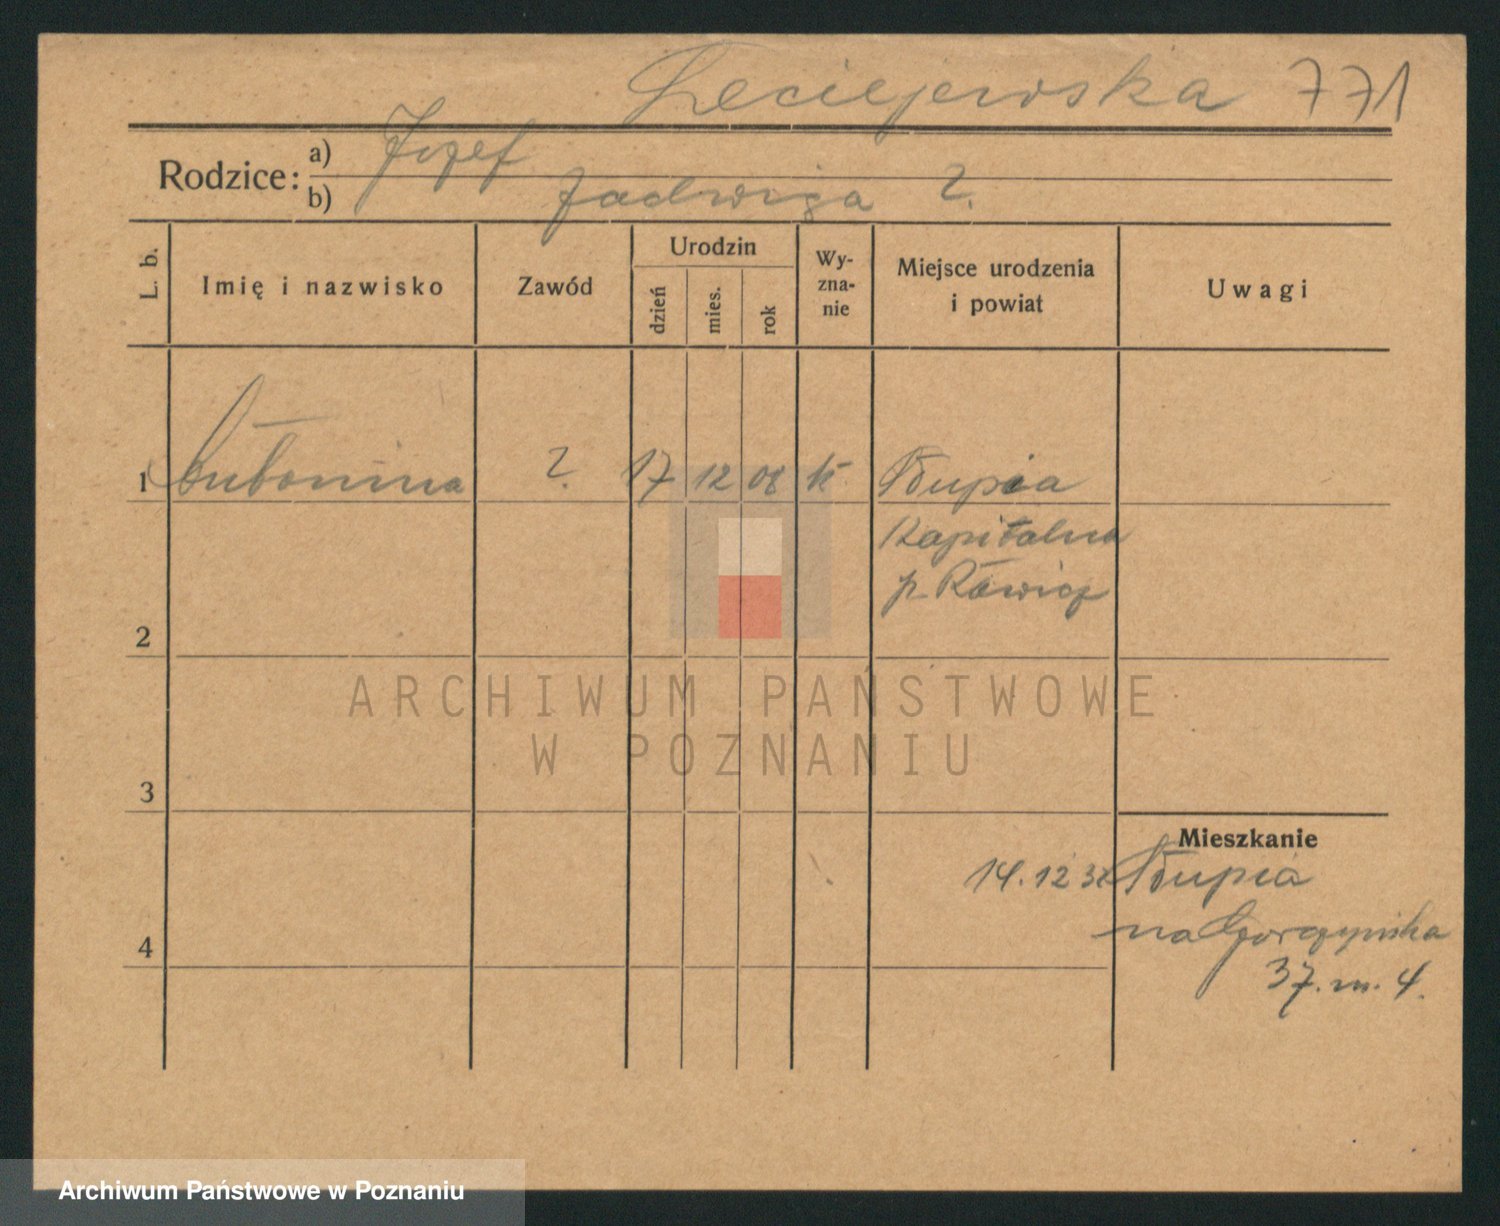 Leciejewska 771
Rodzice: a) Józef
b) Jadwiga ?
L. b.
Imię i nazwisko
Zawód
Urodzin
dzień
mies.
rok
Wy-
zna-
nie
Miejsce urodzenia
i powiat
Uwagi
1 Antonina ? 17 12 08 k Słupia
Kapitulna
p. Rawicz
2
3
4
Mieszkanie
14.12 32 Słupia
na Gorczyńska
37. m. 4.
ARCHIWUM PAŃSTWOWE
W POZNANIU
Archiwum Państwowe w Poznaniu